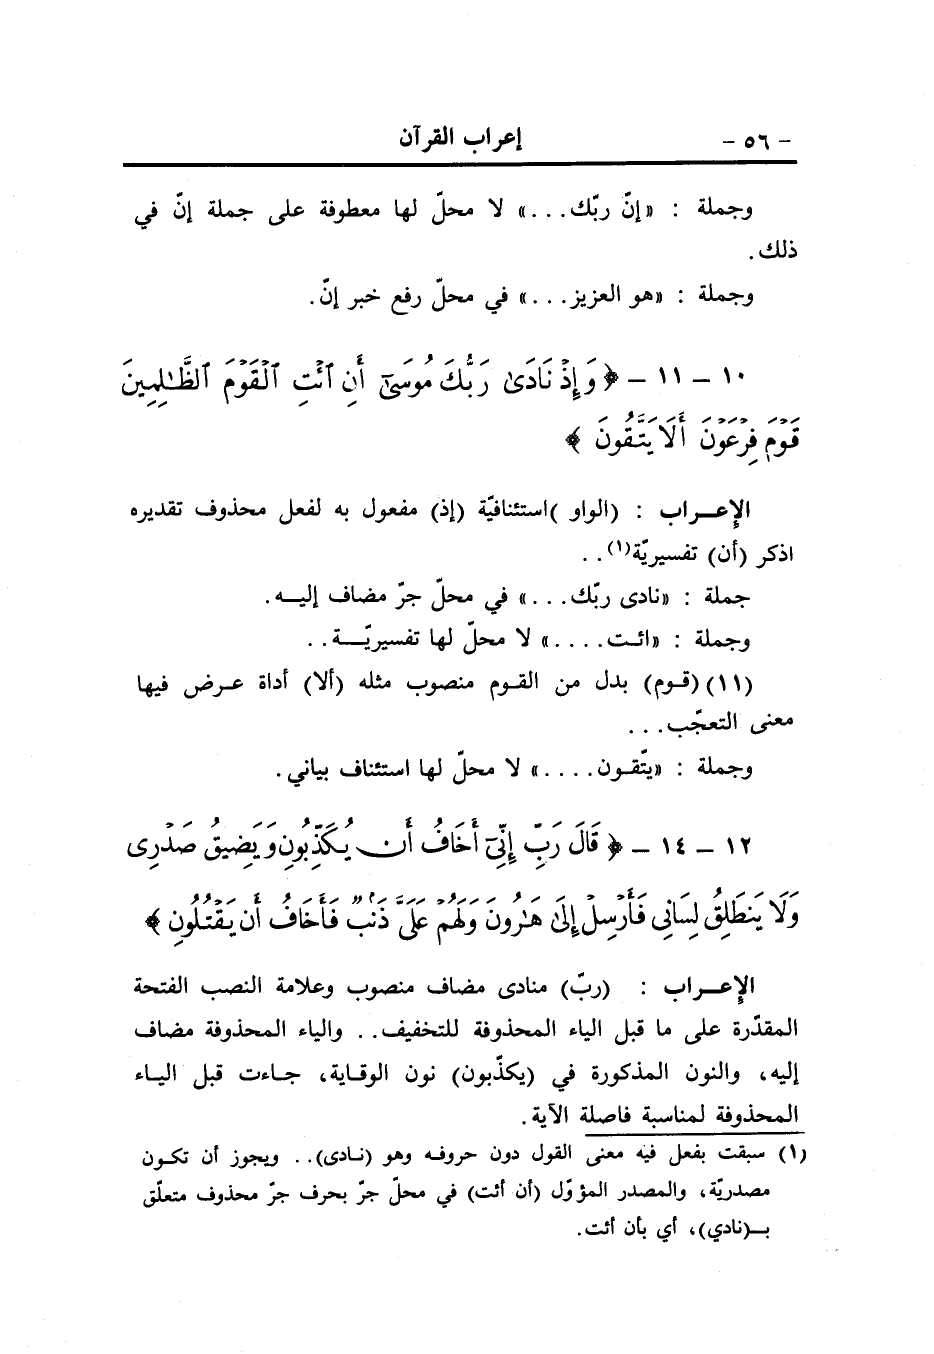 - ٥٦ - إعراب القرآن
وجملة : «إنّ ربّك...» لا محلّ لها معطوفة على جملة إنّ في
ذلك.
وجملة : «هو العزيز...» في محلّ رفع خبر إنّ.
١٠ - ١١ - ﴿ وَإِذْ نَادَىٰ رَبُّكَ مُوسَىٰٓ أَنِ ٱئْتِ ٱلْقَوْمَ ٱلظَّٰلِمِينَ
قَوْمَ فِرْعَوْنَ أَلَا يَتَّقُونَ ﴾
الإعـــراب : (الواو )استئنافيّة (إذ) مفعول به لفعل محذوف تقديره
اذكر (أن) تفسيريّة(١)..
جملة : «نادى ربّك...» في محلّ جرّ مضاف إليـــه.
وجملة : «ائـت....» لا محلّ لها تفسيريّـــة..
(١١) (قـوم) بدل من القـوم منصوب مثله (ألا) أداة عـرض فيها
معنى التعجّب...
وجملة : «يتّقـون....» لا محلّ لها استئناف بياني.
١٢ - ١٤ - ﴿ قَالَ رَبِّ إِنِّىٓ أَخَافُ أَن يُكَذِّبُونِ وَيَضِيقُ صَدْرِى
وَلَا يَنطَلِقُ لِسَانِى فَأَرْسِلْ إِلَىٰ هَٰرُونَ وَلَهُمْ عَلَىَّ ذَنۢبٌ فَأَخَافُ أَن يَقْتُلُونِ ﴾
الإعـــراب : (ربّ) منادى مضاف منصوب وعلامة النصب الفتحة
المقدّرة على ما قبل الياء المحذوفة للتخفيف.. والياء المحذوفة مضاف
إليه، والنون المذكورة في (يكذّبون) نون الوقـاية، جـاءت قبل اليـاء
المحذوفة لمناسبة فاصلة الآية.
(١) سبقت بفعل فيه معنى القول دون حروفـه وهو (نـادى).. ويجوز أن تكـون
مصدريّة، والمصدر المؤوّل (أن أئت) في محلّ جرّ بحرف جرّ محذوف متعلّق
بـ(نادي)، أي بأن أئت.